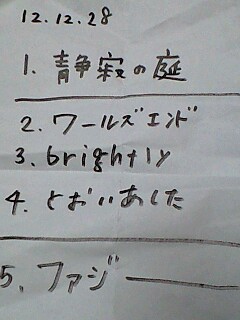 12.12.28
1. 静寂の庭
2. ワールズエンド
3. brightly
4. とおいあした
5. ファジー